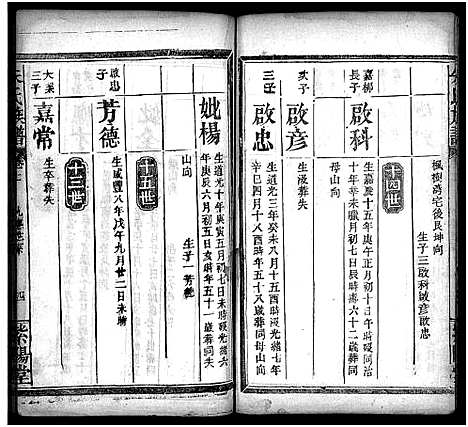 楓樹灣宅後艮坤向
生子三啟科啟彥啟忠
十四世
嘉椰
長子
啟科
生嘉慶十五年庚午正月初十日寅時歿同治
十年辛未臘月初七日辰時六十二歲葬同
母山向
次子
啟彥
生卒葬失
三子
啟忠
生道光三年癸未八月十五日酉時歿光緒七年
辛巳四月十八酉時年五十九歲葬同母山向
妣楊
生道光十年庚寅五月初七日未時歿光緒六
年庚辰六月初五日亥時年五十一歲葬同夫
山向
生子一芳德
十五世
啟忠
子
芳德
生咸豐八年戊午九月廿二日未時
十三世
大業
三子
嘉常
生卒葬失
氏族譜
四
紫陽堂